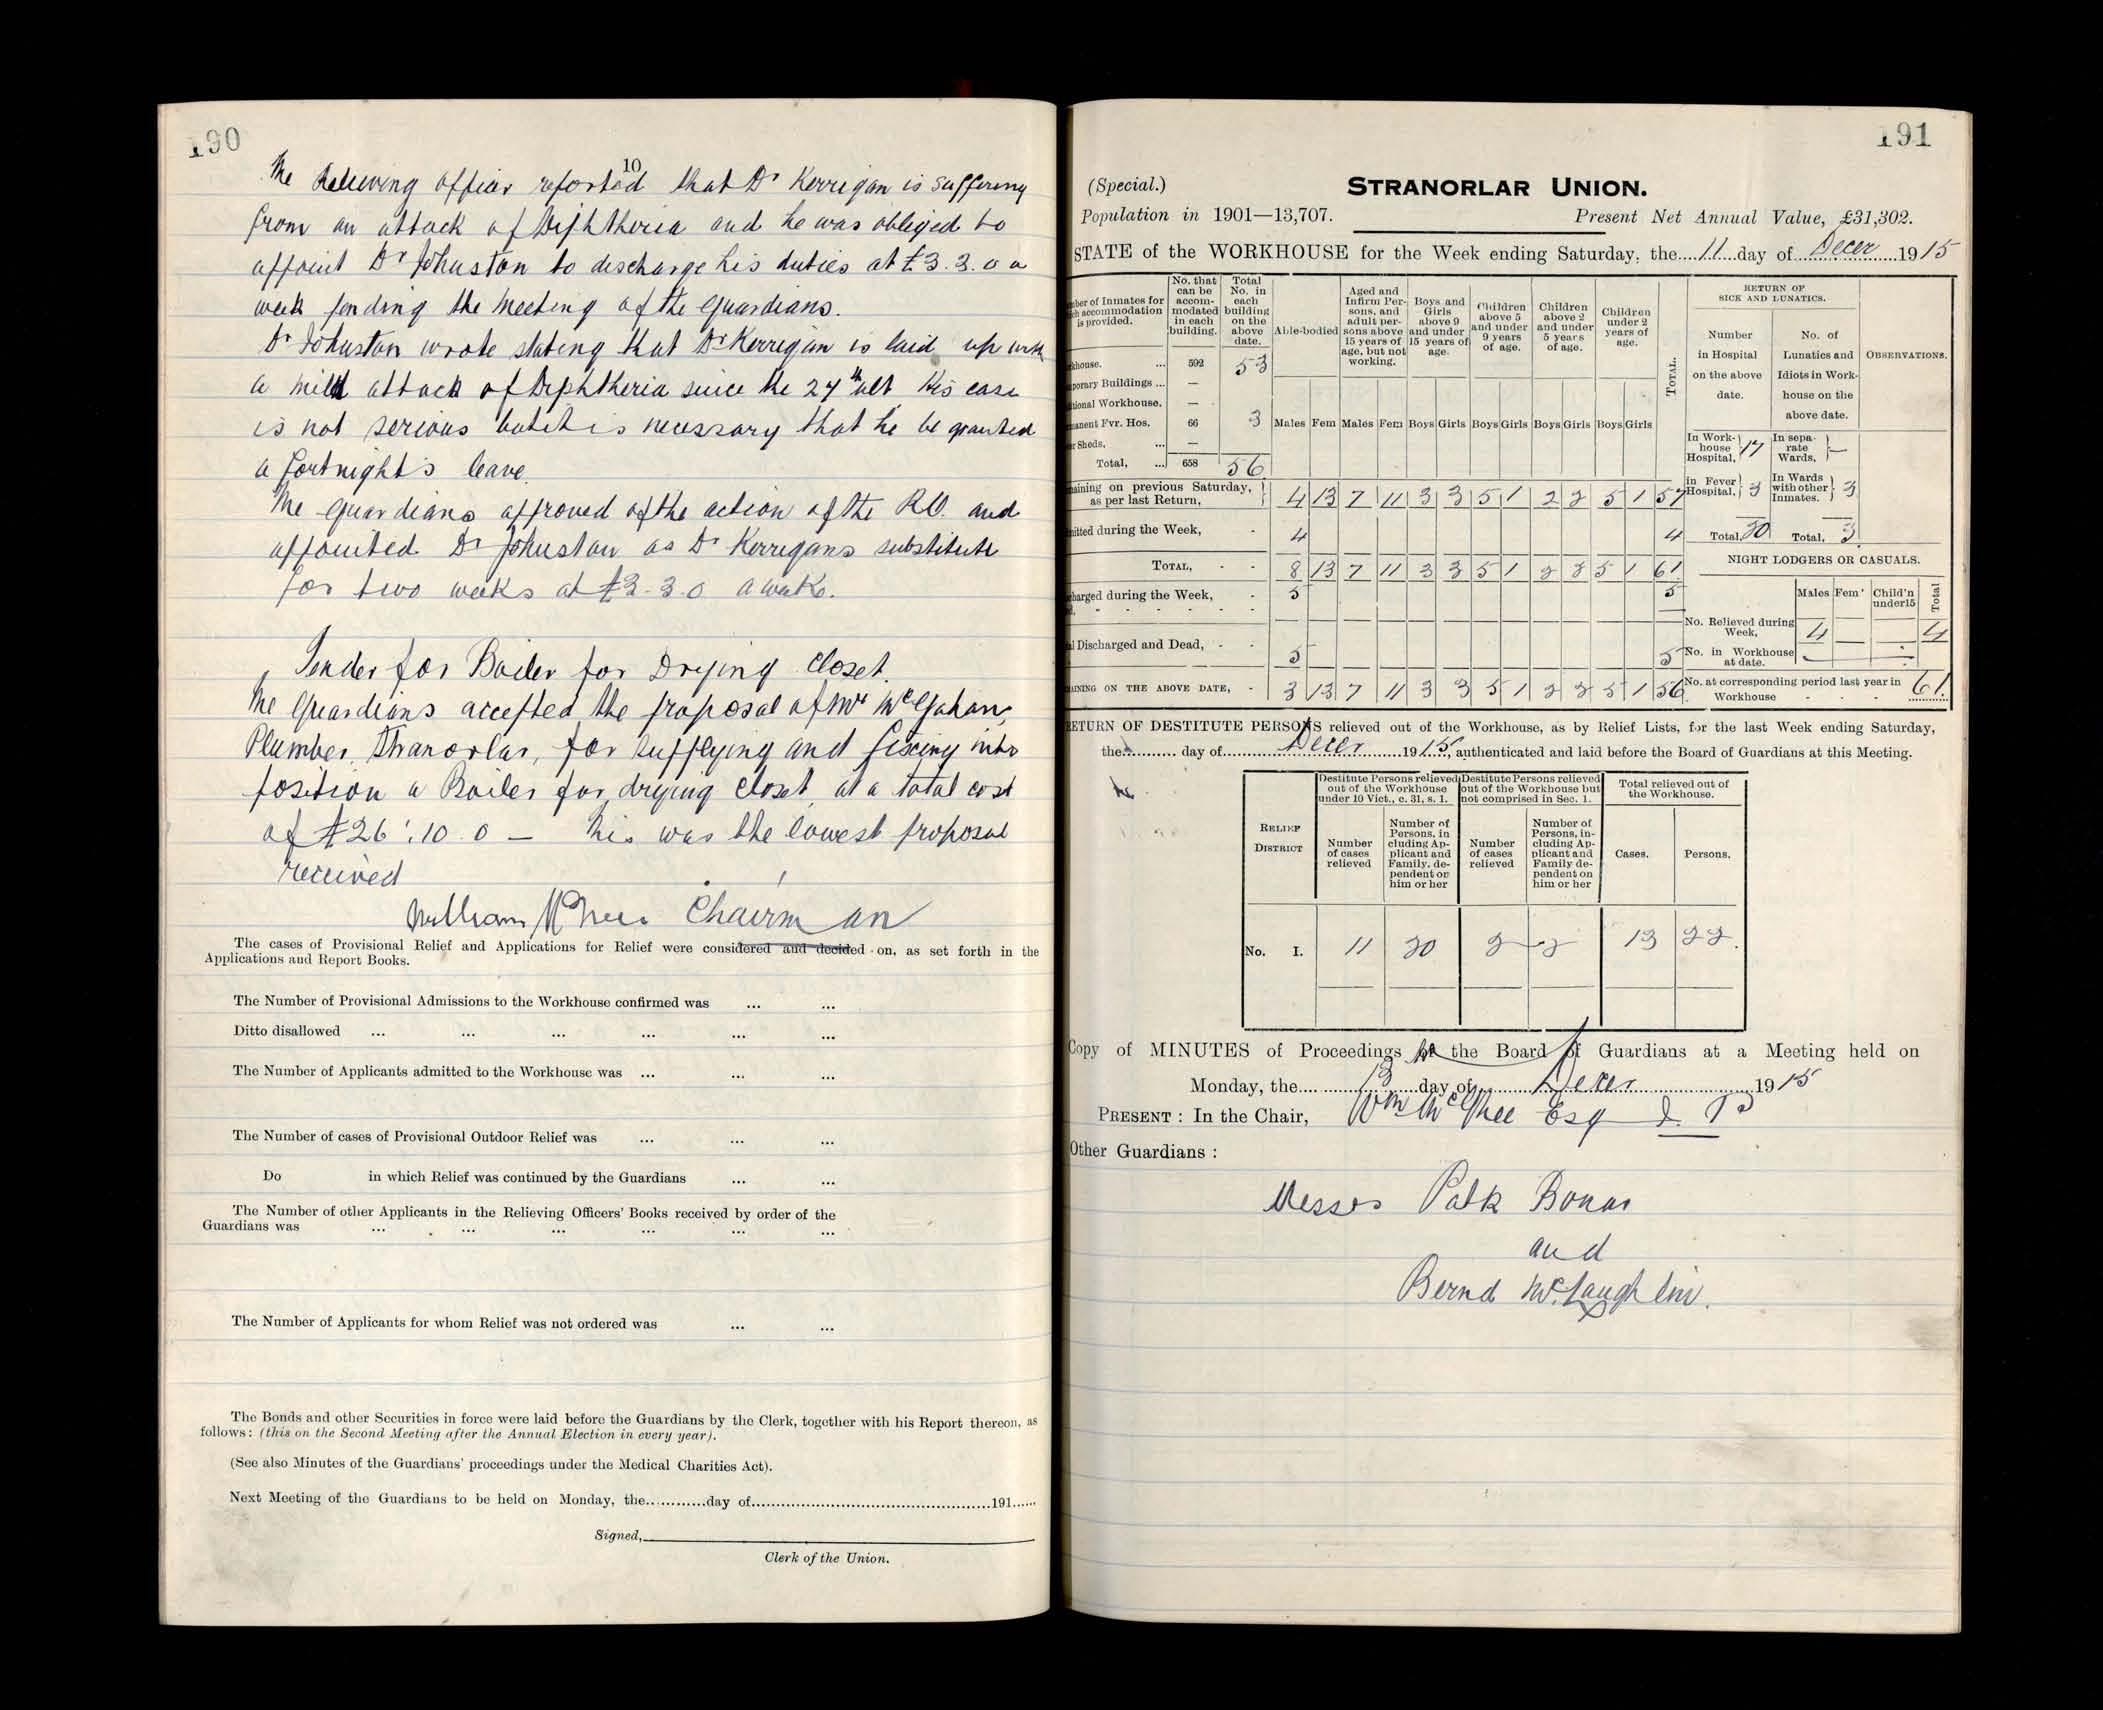 190
10
The Relieving Officer reported that Dr Kerrigan is suffering
from an attack of Diphtheria and he was obliged to
appoint Dr Johnston to discharge his duties at £3.3.0 a
week pending the Meeting of the Guardians.
Dr Johnston wrote stating that Dr Kerrigan is laid up with
a mild attack of Diphtheria since the 27th ult His case
is not serious but it is necessary that he be granted
a fortnight's leave.
The Guardians approved of the action of the R.O. and
appointed Dr Johnston as Dr Kerrigans substitute
for two weeks at £3.3.0 a week.
Tender for Boiler for Drying Closet.
The Guardians accepted the proposal of Mr McGahan,
Plumber, Stranorlar, for supplying and fixing into
position a Boiler for drying closet at a total cost
of £26:10.0 — This was the lowest proposal
received
William McGhee Chairman
The cases of Provisional Relief and Applications for Relief were considered and decided on, as set forth in the
Applications and Report Books.
The Number of Provisional Admissions to the Workhouse confirmed was ... ...
Ditto disallowed ... ... ... ... ... ...
The Number of Applicants admitted to the Workhouse was ... ... ...
The Number of cases of Provisional Outdoor Relief was ... ... ...
Do in which Relief was continued by the Guardians ... ...
The Number of other Applicants in the Relieving Officers' Books received by order of the
Guardians was ... ... ... ... ... ...
The Number of Applicants for whom Relief was not ordered was ... ...
The Bonds and other Securities in force were laid before the Guardians by the Clerk, together with his Report thereon, as
follows: (this on the Second Meeting after the Annual Election in every year).
(See also Minutes of the Guardians' proceedings under the Medical Charities Act).
Next Meeting of the Guardians to be held on Monday, the............day of................................................191......
Signed,
Clerk of the Union.
191
(Special.)
STRANORLAR UNION.
Population in 1901—13,707. Present Net Annual Value, £31,302.
STATE of the WORKHOUSE for the Week ending Saturday, the....11...day of...Decer...1915
ber of Inmates for
ch accommodation
is provided.
No. that can be accommodated in each building.
Total No. in each building on the above date.
Able-bodied
Aged and Infirm Persons, and adult persons above 15 years of age, but not working.
Boys and Girls above 9 and under 15 years of age.
Children above 5 and under 9 years of age.
Children above 2 and under 5 years of age.
Children under 2 years of age.
TOTAL.
RETURN OF SICK AND LUNATICS.
Number in Hospital on the above date.
No. of Lunatics and Idiots in Workhouse on the above date.
OBSERVATIONS.
khouse. ... 592 53
porary Buildings ... —
tional Workhouse. —
manent Fvr. Hos. 66 3
r Sheds. ... —
Total, ... 658 56
Males Fem Males Fem Boys Girls Boys Girls Boys Girls Boys Girls
In Workhouse Hospital, 17 In separate Wards, —
In Fever Hospital, 3 In Wards with other Inmates. 3
Total, 20 Total, 3
aining on previous Saturday, as per last Return, 4 13 7 11 3 3 5 1 2 2 5 1 57
itted during the Week, - 4 4
TOTAL, - - 8 13 7 11 3 3 5 1 2 2 5 1 61
harged during the Week, - 5 5
l Discharged and Dead, - - 5 5
AINING ON THE ABOVE DATE, - 3 13 7 11 3 3 5 1 2 2 5 1 56
NIGHT LODGERS OR CASUALS.
Males Fem' Child'n under 15 Total
No. Relieved during Week, 4 — — 4
No. in Workhouse at date.
No. at corresponding period last year in Workhouse - - - 61
RETURN OF DESTITUTE PERSONS relieved out of the Workhouse, as by Relief Lists, for the last Week ending Saturday,
the............ day of............Decer......1915, authenticated and laid before the Board of Guardians at this Meeting.
RELIEF DISTRICT
Destitute Persons relieved out of the Workhouse under 10 Vict., c. 31, s. 1.
Destitute Persons relieved out of the Workhouse but not comprised in Sec. 1.
Total relieved out of the Workhouse.
Number of cases relieved
Number of Persons, including Applicant and Family, dependent on him or her
Number of cases relieved
Number of Persons, including Applicant and Family dependent on him or her
Cases.
Persons.
No. I. 11 20 2 2 13 22
Copy of MINUTES of Proceedings the Board of Guardians at a Meeting held on
Monday, the....13....day of....Decer....1915
PRESENT : In the Chair, Wm McGhee Esq J. P
Other Guardians :
Messrs Patk Bonar
and
Bernd McLaughlin.